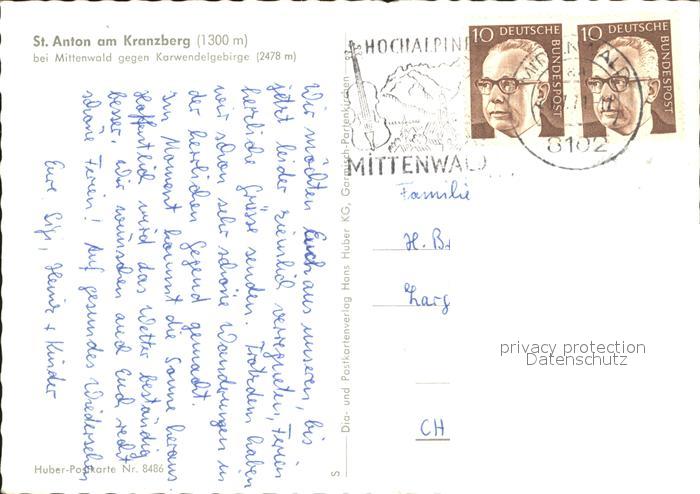 St. Anton am Kranzberg (1300 m)
bei Mittenwald gegen Karwendelgebirge (2478 m)
Wir möchten Euch aus unseren, bis
jetzt leider ziemlich verregneten, Ferien
herzliche Grüsse senden. Trotzdem haben
wir schon sehr schöne Wanderungen in
der herrlichen Gegend gemacht.
Im Moment kommt die Sonne heraus
Hoffentlich wird das Wetter beständig
besser. Wir wünschen auch Euch recht
schöne Ferien! Auf gesundes Wiedersehen
Eure Heinz + Kinder
Huber-Postkarte Nr. 8486
S
Dia- und Postkartenverlag Hans Huber KG, Garmisch-Partenkirchen
HOCHALPINE
MITTENWALD
10 DEUTSCHE BUNDESPOST
10 DEUTSCHE BUNDESPOST
8102
Familie
H. B
Zurg
CH
privacy protection
Datenschutz